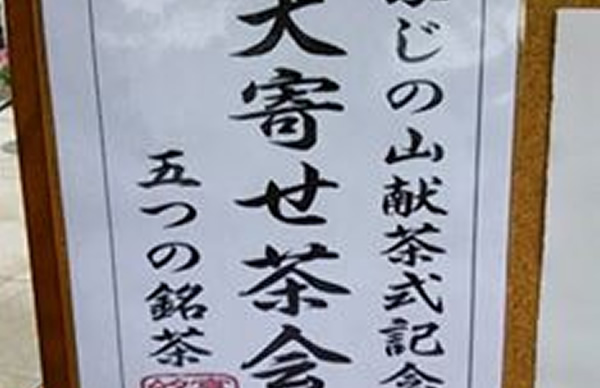 ふじの山献茶式記念
大寄せ茶会
五つの銘茶